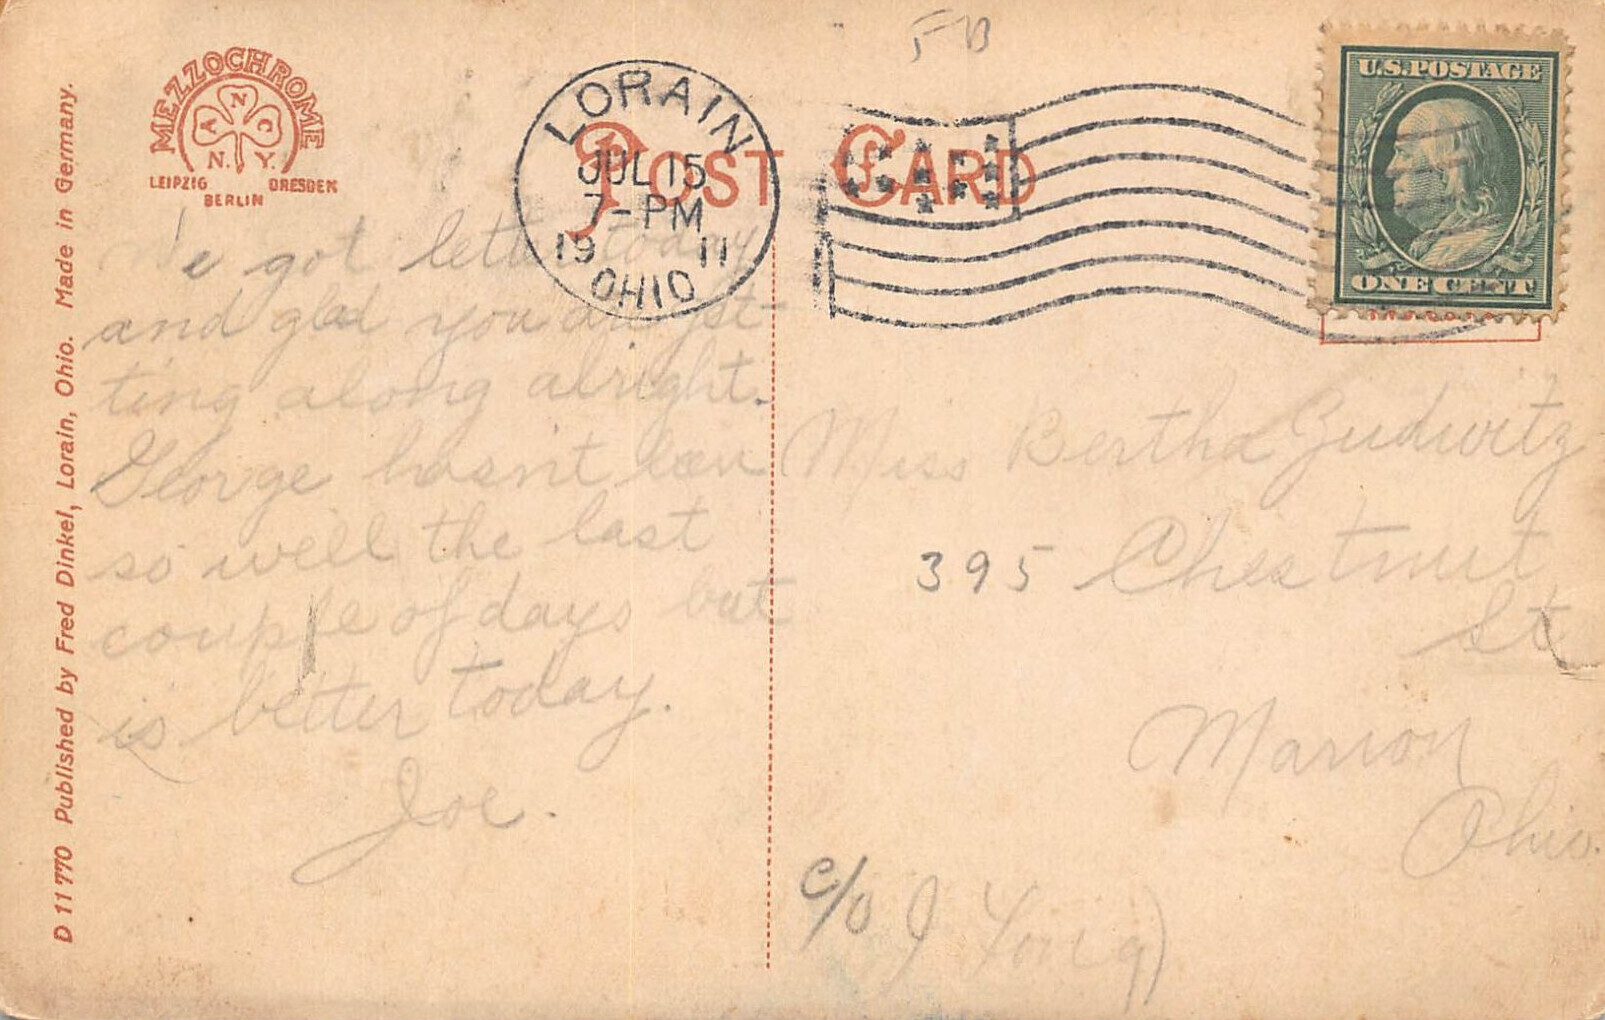 FB
MEZZOCHROME
A N C
N. Y.
LEIPZIG DRESDEN
BERLIN
POST CARD
LORAIN
JUL 15
7-PM
19 11
OHIO
U.S. POSTAGE
ONE CENT
D 11770 Published by Fred Dinkel, Lorain, Ohio. Made in Germany.
We got letter today
and glad you are get-
ting along alright.
George hasn't been
so well the last
couple of days but
is better today.
Joe.
Miss Bertha
395 Chestnut
St
Marion
Ohio.
c/o J Young